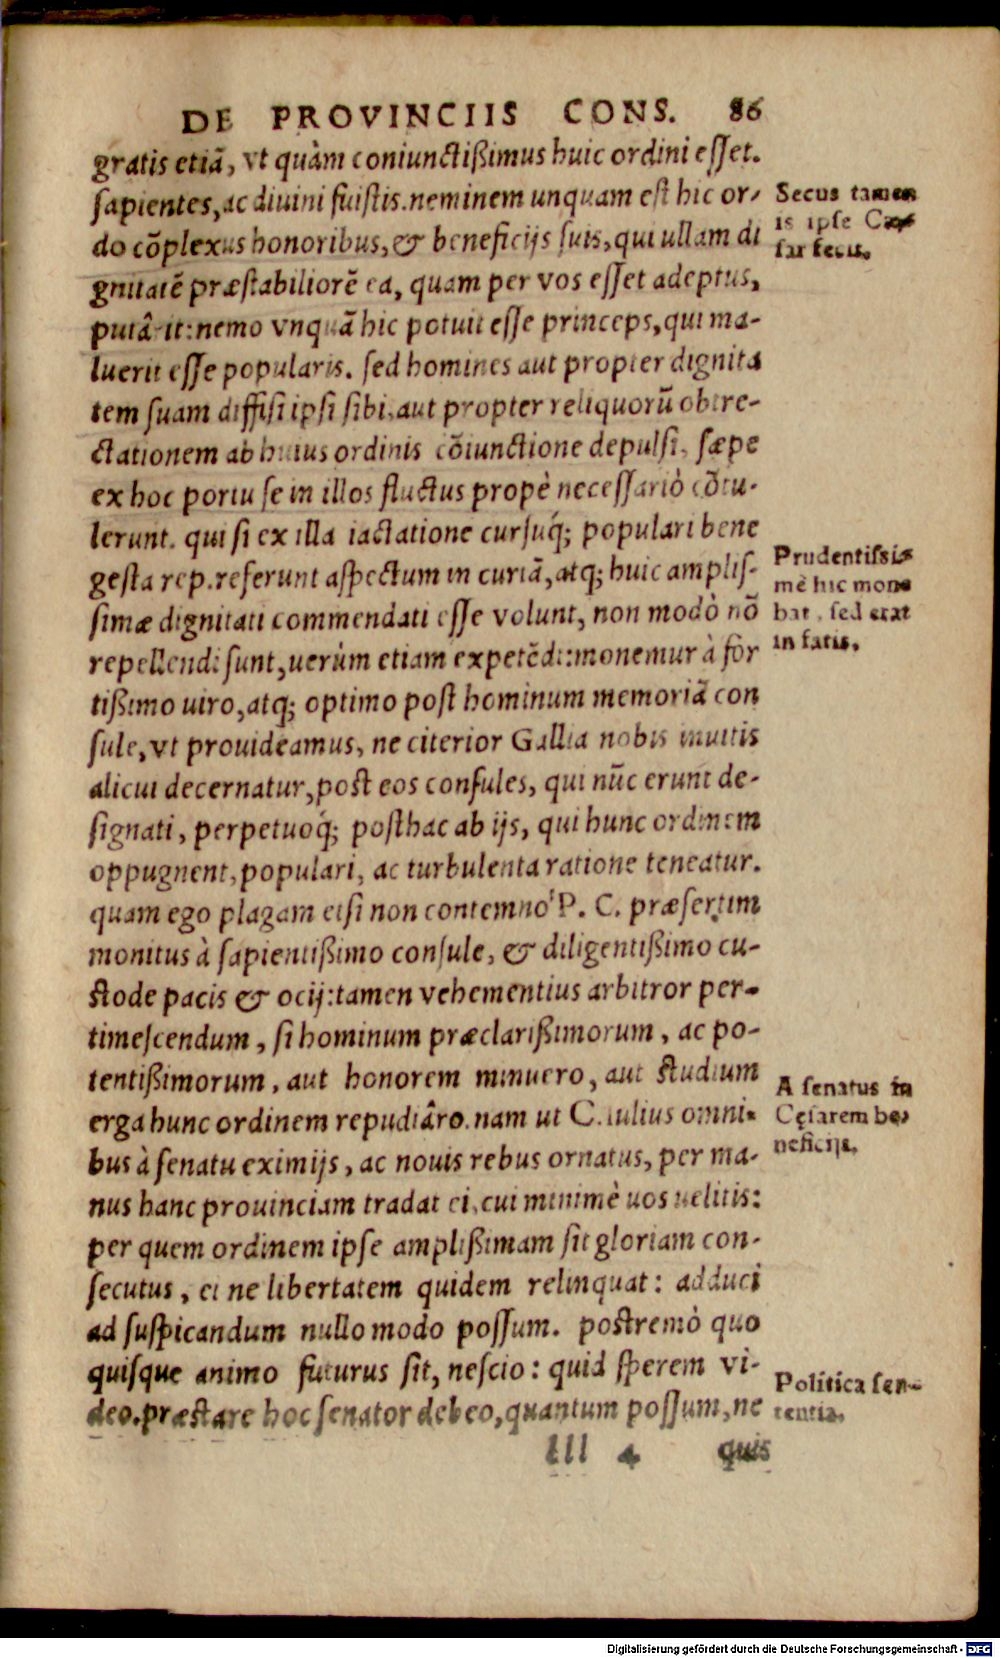 DE PROVINCIIS CONS. 86
gratis etiã, vt quàm coniunctißimus huic ordini esset.
sapientes, ac diuini fuistis. neminem unquam est hic or-
do cõplexus honoribus, & beneficijs suis, qui ullam di
gnitatẽ præstabiliorẽ ea, quam per vos esset adeptus,
putârit: nemo vnquã hic potuit esse princeps, qui ma-
luerit esse popularis. sed homines aut propter dignita
tem suam diffisi ipsi sibi, aut propter reliquorũ obtre-
ctationem ab huius ordinis cõiunctione depulsi, sæpe
ex hoc portu se in illos fluctus propè necessariò cõtu-
lerunt. qui si ex illa iactatione cursuq́; populari bene
gesta rep. referunt aspectum in curiã, atq; huic amplis-
simæ dignitati commendati esse volunt, non modò nõ
repellendi sunt, uerùm etiam expetẽdi: monemur à for
tißimo uiro, atq; optimo post hominum memoriã con
sule, vt prouideamus, ne citerior Gallia nobis inuitis
alicui decernatur, post eos consules, qui nũc erunt de-
signati, perpetuoq́; posthac ab ijs, qui hunc ordinem
oppugnent, populari, ac turbulenta ratione teneatur.
quam ego plagam etsi non contemno P. C. præsertim
monitus à sapientißimo consule, & diligentißimo cu-
stode pacis & ocij: tamen vehementius arbitror per-
timescendum, si hominum præclarißimorum, ac po-
tentißimorum, aut honorem minuero, aut studium
erga hunc ordinem repudiâro. nam ut C. Iulius omni-
bus à senatu eximijs, ac nouis rebus ornatus, per ma-
nus hanc prouinciam tradat ei, cui minimè uos uelitis:
per quem ordinem ipse amplißimam sit gloriam con-
secutus, ei ne libertatem quidem relinquat: adduci
ad suspicandum nullo modo possum. postremò quo
quisque animo futurus sit, nescio: quid sperem vi-
deo. præstare hoc senator debeo, quantum possum, ne
lll 4 quis
Secus tamen
is ipse Cæ-
sar fecit.
Prudentissi-
mè hic mone
bat, sed erat
in fatis.
A senatus in
Cęsarem be-
neficijs.
Politica sen-
tentia.
Digitalisierung gefördert durch die Deutsche Forschungsgemeinschaft - DFG